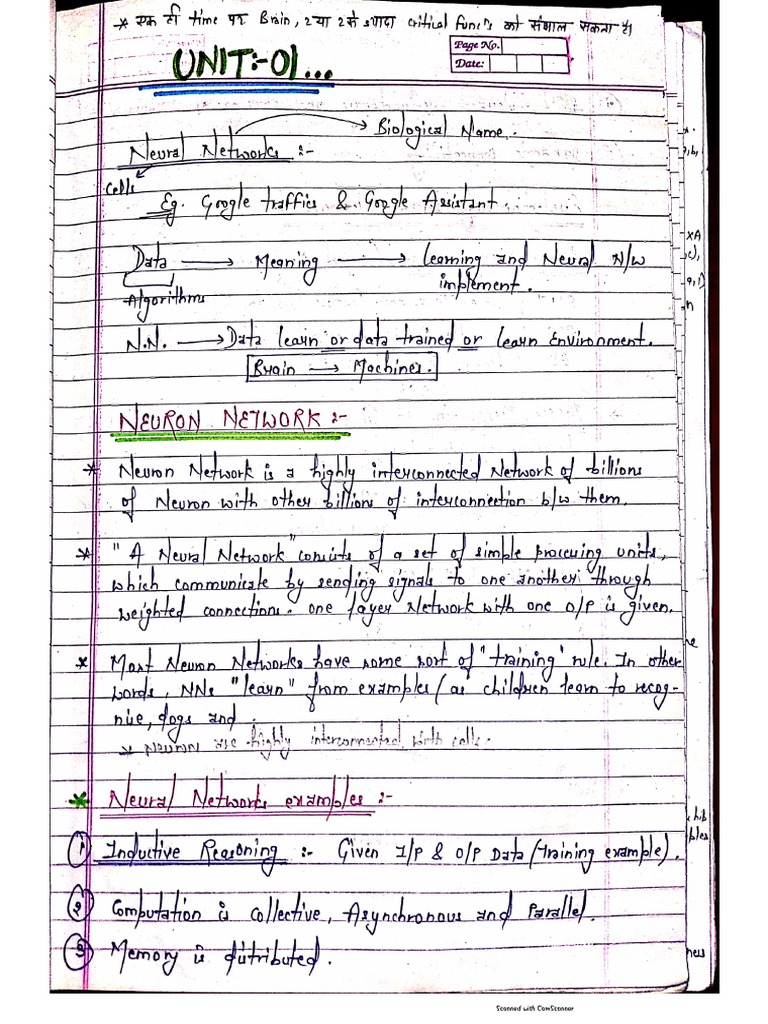 * एक ही time पर Brain, 2 या 2 से ज्यादा critical func's को संभाल सकता है।
Page No.
Date:
UNIT:-01...
Biological Name.
Neural Networks :-
cells
Eg. Google traffics & Google Assistant.
Data → Meaning → Learning and Neural N/w
implement.
Algorithms
N.N. → Data learn or data trained or learn Environment.
Brain → Machines.
NEURON NETWORK :-
* Neuron Network is a highly interconnected Network of billions
of Neuron with other billions of interconnection b/w them.
* "A Neural Network" consists of a set of simple processing units,
which communicate by sending signals to one another through
weighted connections. one layer Network with one O/P is given.
* Most Neuron Networks have some sort of "training" rule. In other
words, NNs "learn" from examples (as children learn to recog-
nise, dogs and.
* Neuron are highly interconnected with cells.
* Neural Networks examples :-
1 Inductive Reasoning :- Given I/P & O/P Data (training example).
2 Computation is collective, Asynchronous and Parallel.
3 Memory is distributed.
Scanned with CamScanner